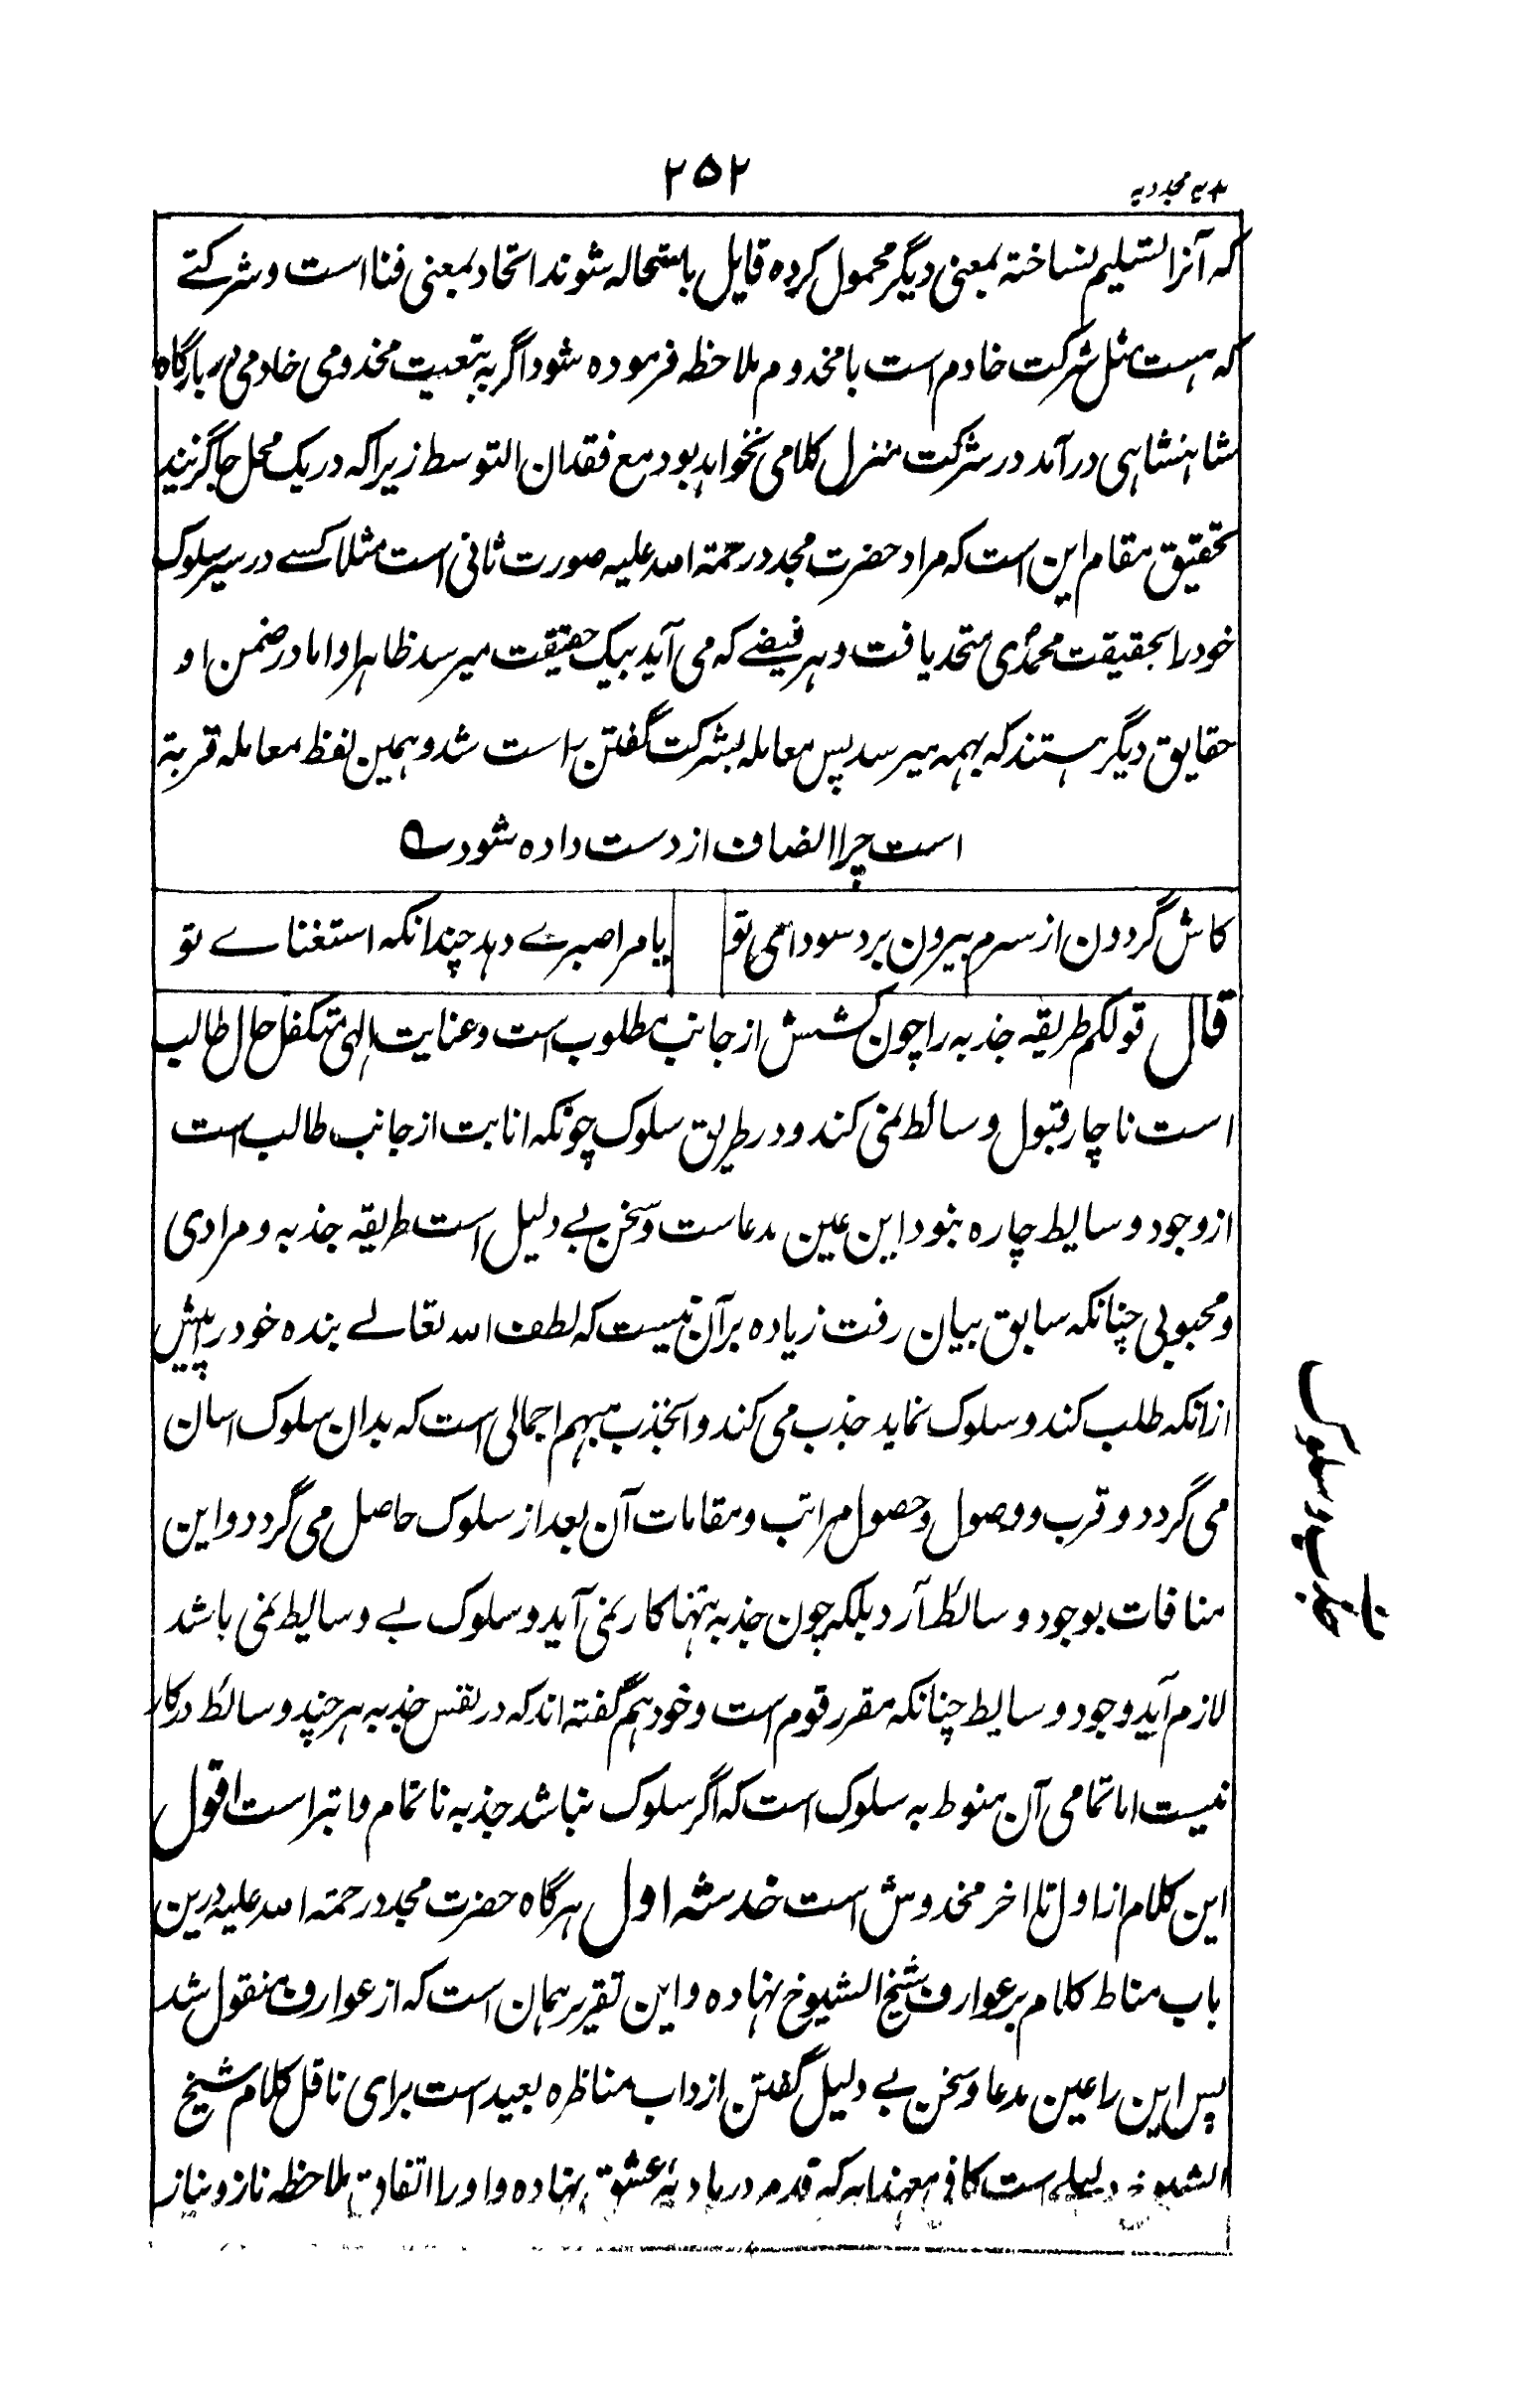 ۲۵۲
هدیه مجددیه
که آنرا تسلیم نساخته بمعنی دیگر محمول کرده قایل باستحاله شوند اتحاد بمعنی فنا است و شرکتے
که هست مثل شرکت خادم است با مخدوم ملاحظه فرموده شود اگر به تبعیت مخدومی خادمی در بارگاه
شاهنشاهی درآمد در شرکت منزل کلامی نخواهد بود مع فقدان التوسط زیراکه در یک محل جاگزیند
تحقیق مقام این است که مراد حضرت مجدد رحمة الله علیه صورت ثانی است مثلا کسے در سیر سلوک
خود را بحقیقت محمدی متحد یافت و هر فیضے که می آید بیک حقیقت میرسد ظاهرا و اما در ضمن او
حقایق دیگر هستند که بهمه میرسد پس معامله بشرکت گفتن راست شد و همین لفظ معامله قرینه
است چرا انصاف از دست داده شود ے
کاش گردون از سرم بیرون برد سودای تو
یا مرا صبرے دهد چندانکه استغناے تو
قال قولکم طریقه جذبه را چون کشش از جانب مطلوب است و عنایت الهی متکفل حال طالب
است ناچار قبول وسائط نمی کند و در طریق سلوک چونکه انابت از جانب طالب است
از وجود وسایط چاره نبود این عین مدعاست و سخن بے دلیل است طریقه جذبه و مرادی
و محبوبی چنانکه سابق بیان رفت زیاده بر آن نیست که لطف الله تعالے بنده خود را پیش
ازانکه طلب کند و سلوک نماید جذب می کند و آنجذب مبهم اجمالی است که بدان سلوک اسان
می گردد و قرب و وصول و حصول مراتب و مقامات آن بعد از سلوک حاصل می گردد و این
منافات بوجود وسائط آرد بلکه چون جذبه تنها کار نمی آید و سلوک بے وسایط نمی باشد
لازم آید وجود وسایط چنانکه مقرر قوم است و خود هم گفته اند که در نفس جذبه هر چند وسائط درکار
نیست اما تمامی آن منوط به سلوک است که اگر سلوک نباشد جذبه ناتمام و ابتر است اقول
این کلام از اول تا اخر مخدوش است خدشه اول هرگاه حضرت مجدد رحمة الله علیه درین
باب مناط کلام بر عوارف شیخ الشیوخ نهاده و این تقریر همان است که از عوارف منقول شد
پس این را عین مدعا و سخن بے دلیل گفتن از داب مناظره بعید است برای ناقل کلام شیخ
الشیوخ دلیلے است کافی معهذا هر که قدم در بادیهٔ عشق نهاده و او را اتفاق ملاحظه ناز و نیاز
جذب و سلوک